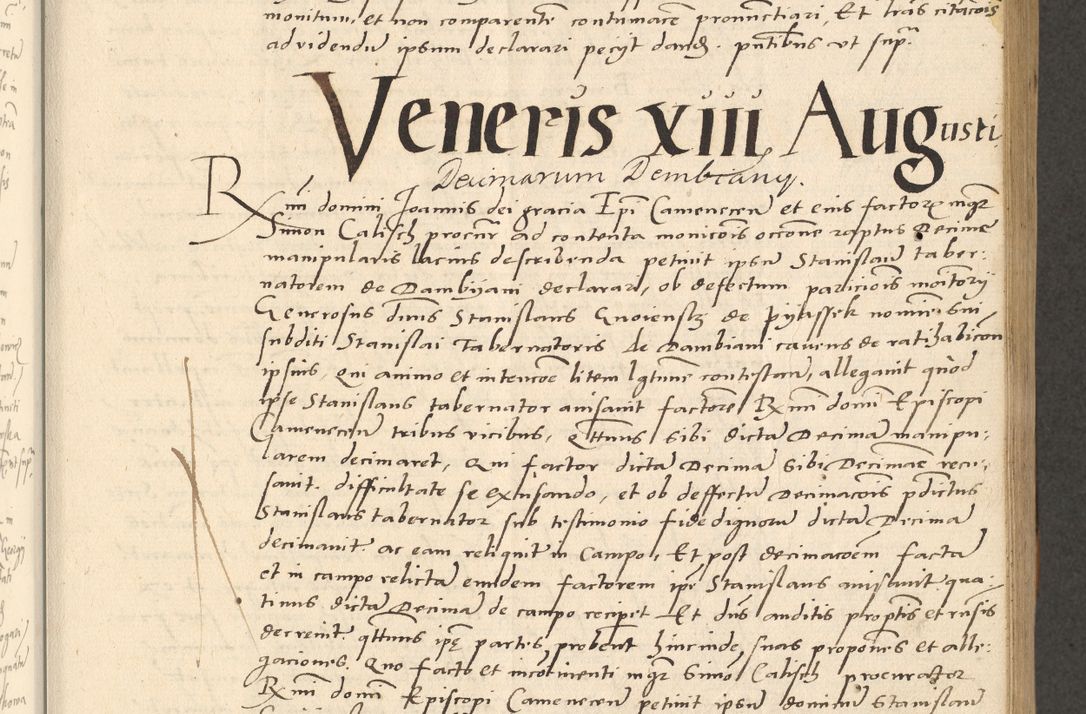 monitum, et non comparentē contumacē pronunctiari, Et trās citacōis
ad videndū ipsum declarari pecijt dandꝫ. pntibus vt supr.
Veneris xiii Augusti
Decimarum Dembiany.
Rxmi domini Joannis dei gracia Epi Camenecen et eius factorꝫ mgr
Simon Calisch procur ad contenta monicōis occōne raptus Decime
manipularis lacius describenda petiuit ipsū Stanislaū taber:
natorem de Dambyani declarari, ob defectum paricōis monitorij
Generosus dnus Stanislaus Gnoiensky de Pijassek nomine sui
subditi Stanislai Tabernatoris de Dambiani cauens de ratihabicōn
ipsius, qui animo et intencōe litem lgtime contestan, allegauit quod
ipse Stanislaus tabernator auisauit factorē Rxmi domi Episcopi
Camenecen tribus vicibus, qttnus sibi dictā Decimā manipu:
larem decimaret, qui factor dictā Decimā sibi Decimare recu:
sauit difficultate se excusando, et ob deffectū Decimacōis pdictus
Stanislaus tabernator sub testimonio fidedignorū dictā Decimā
decimauit ac eam reliquit in campo, Et post decimacōem factā
et in campo relictā eundem factorem ipe Stanislaus auisauit qua:
tinus dictā Decimā de campo reciperet Et dns auditis proptis et rnsis
decreuit qttnus ipę partes probent hincinde suas propōnes et alle:
gaciones. Quo facto et incōtinenti mgr Simō Calisch procurator
Rxmi domi Episcopi Camenecen petiuit ipsū dominū Stanislaū